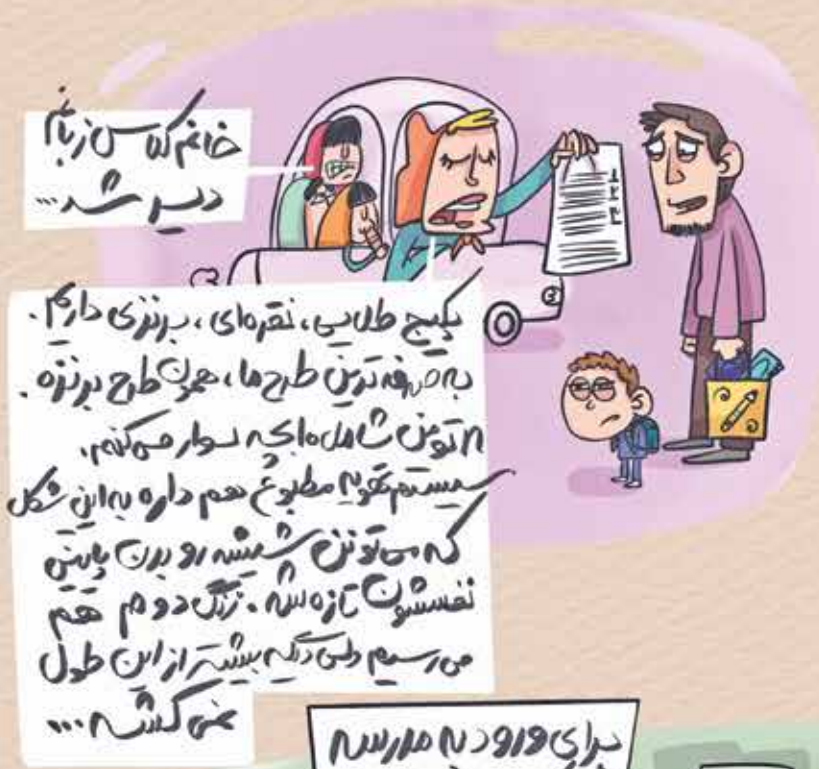 خانم کلاس زبانم
دیر شد...
پکیج طلایی، نقره‌ای، برنزی داریم.
به‌صرفه‌ترین طرح ما، همون طرح برنزه.
تومن شامل ما بچه سوار می‌کنیم.
سیستم تهویه مطبوع هم داره به این شکل
که می‌تونن شیشه رو بدن پایین
نفسشون تازه شه. زنگ دوم هم
می‌رسیم ولی دیگه بیشتر از این طول
نمی‌کشه...
برای ورود به مدرسه